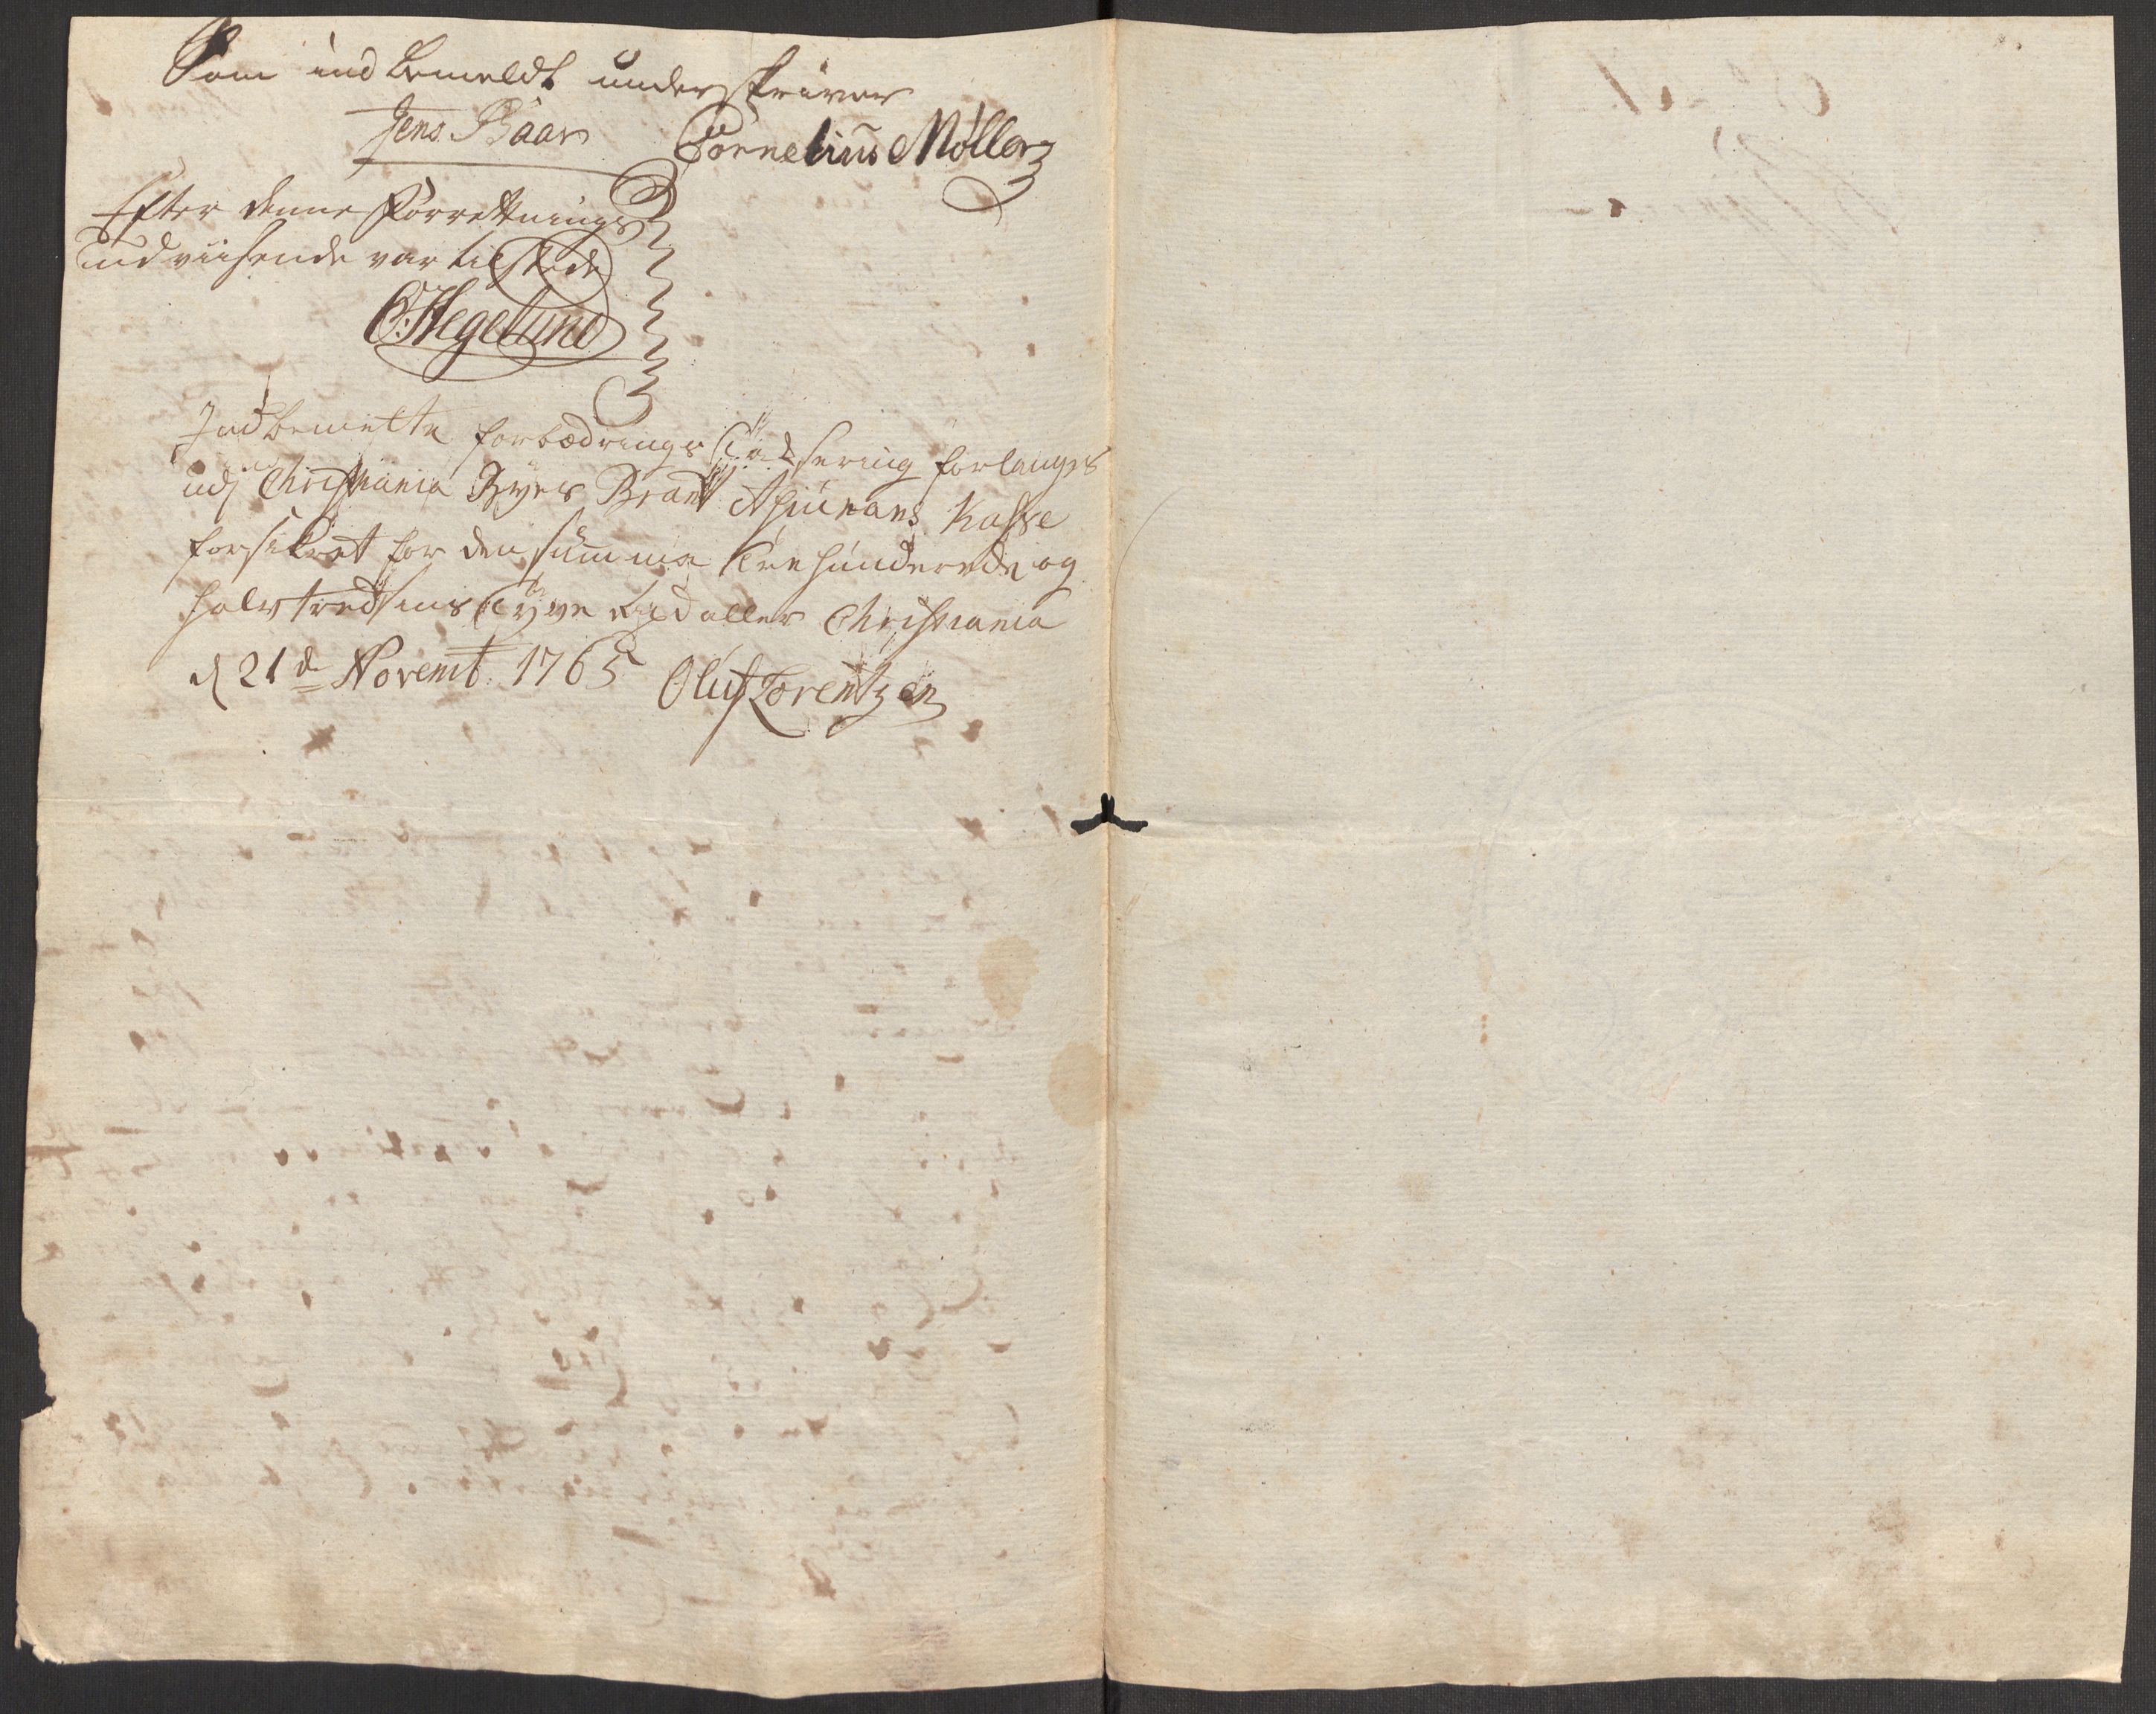 Som ind bemeldt underskriver
Jens Baar Cornelius Møller
Efter denne Forrettnings
udviisende var tilstede
C: Hegelund
Indbemelte forbædrings Taxering forlanges
udj Christiania Byes Brand Assurans Kasse
forsikret for den summa Tre hunderede og
halvtredsins Tyve Rixdaller Christiania
d 21de Novemb. 1765 Oluf Lorentzen